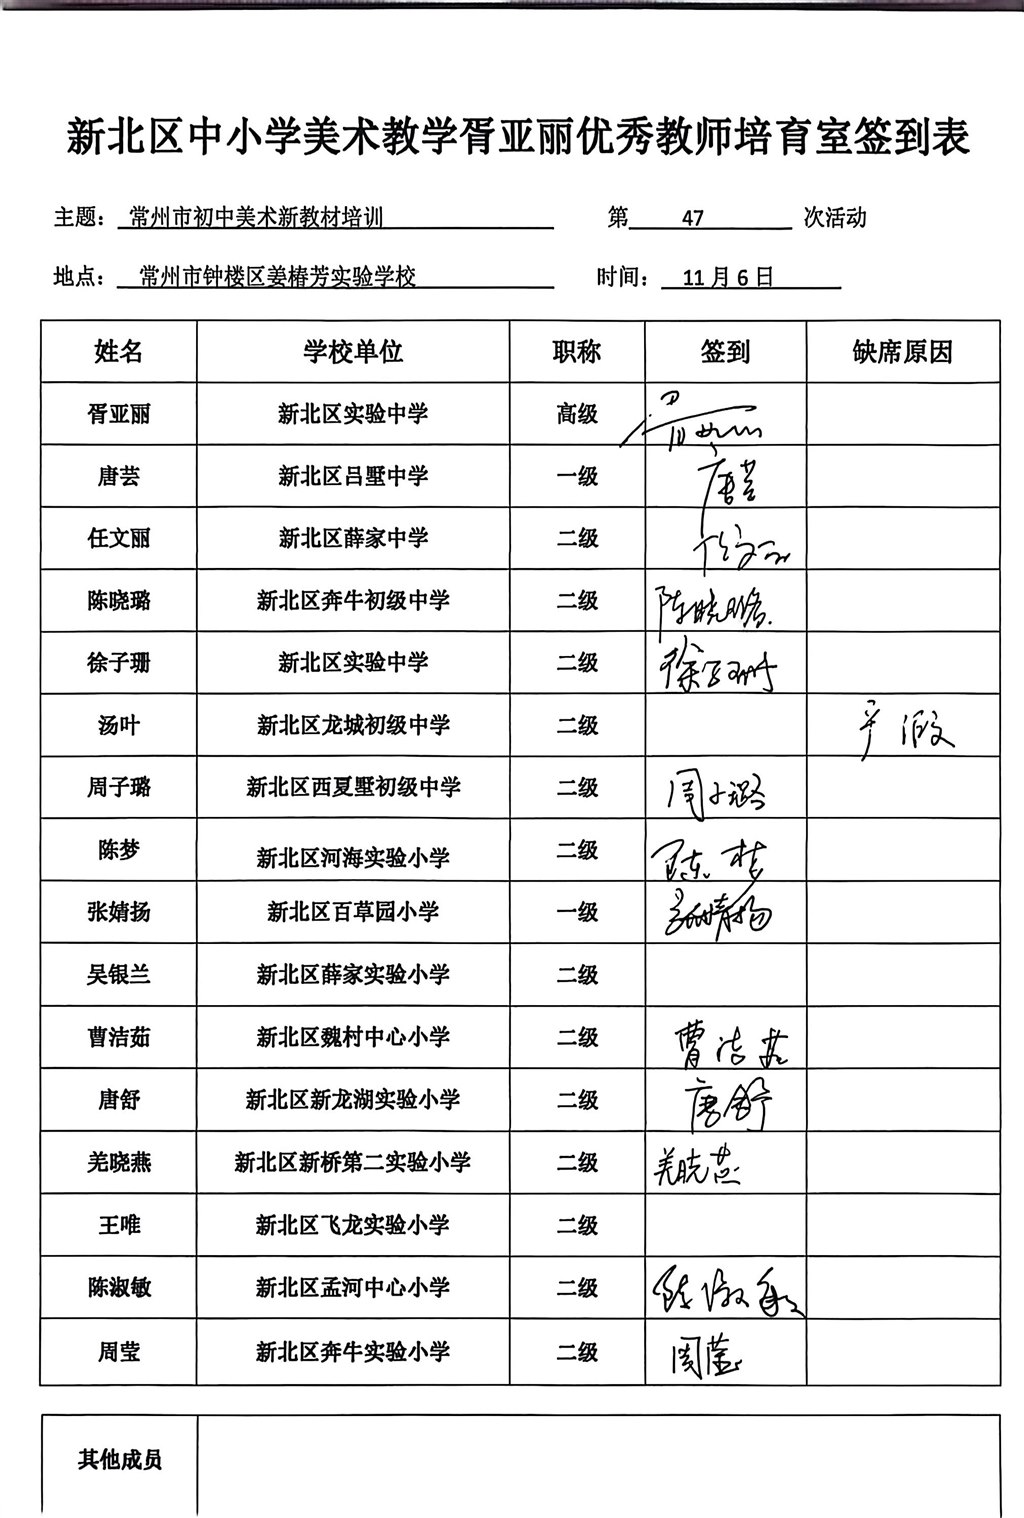 新北区中小学美术教学胥亚丽优秀教师培育室签到表
主题： 常州市初中美术新教材培训 第 47 次活动
地点： 常州市钟楼区姜椿芳实验学校 时间： 11 月 6 日
姓名 学校单位 职称 签到 缺席原因
胥亚丽 新北区实验中学 高级 胥亚丽
唐芸 新北区吕墅中学 一级 唐芸
任文丽 新北区薛家中学 二级 任文丽
陈晓璐 新北区奔牛初级中学 二级 陈晓璐
徐子珊 新北区实验中学 二级 徐子珊
汤叶 新北区龙城初级中学 二级 产假
周子璐 新北区西夏墅初级中学 二级 周子璐
陈梦 新北区河海实验小学 二级 陈梦
张婧扬 新北区百草园小学 一级 张婧扬
吴银兰 新北区薛家实验小学 二级
曹洁茹 新北区魏村中心小学 二级 曹洁茹
唐舒 新北区新龙湖实验小学 二级 唐舒
羌晓燕 新北区新桥第二实验小学 二级 羌晓燕
王唯 新北区飞龙实验小学 二级
陈淑敏 新北区孟河中心小学 二级 陈淑敏
周莹 新北区奔牛实验小学 二级 周莹
其他成员